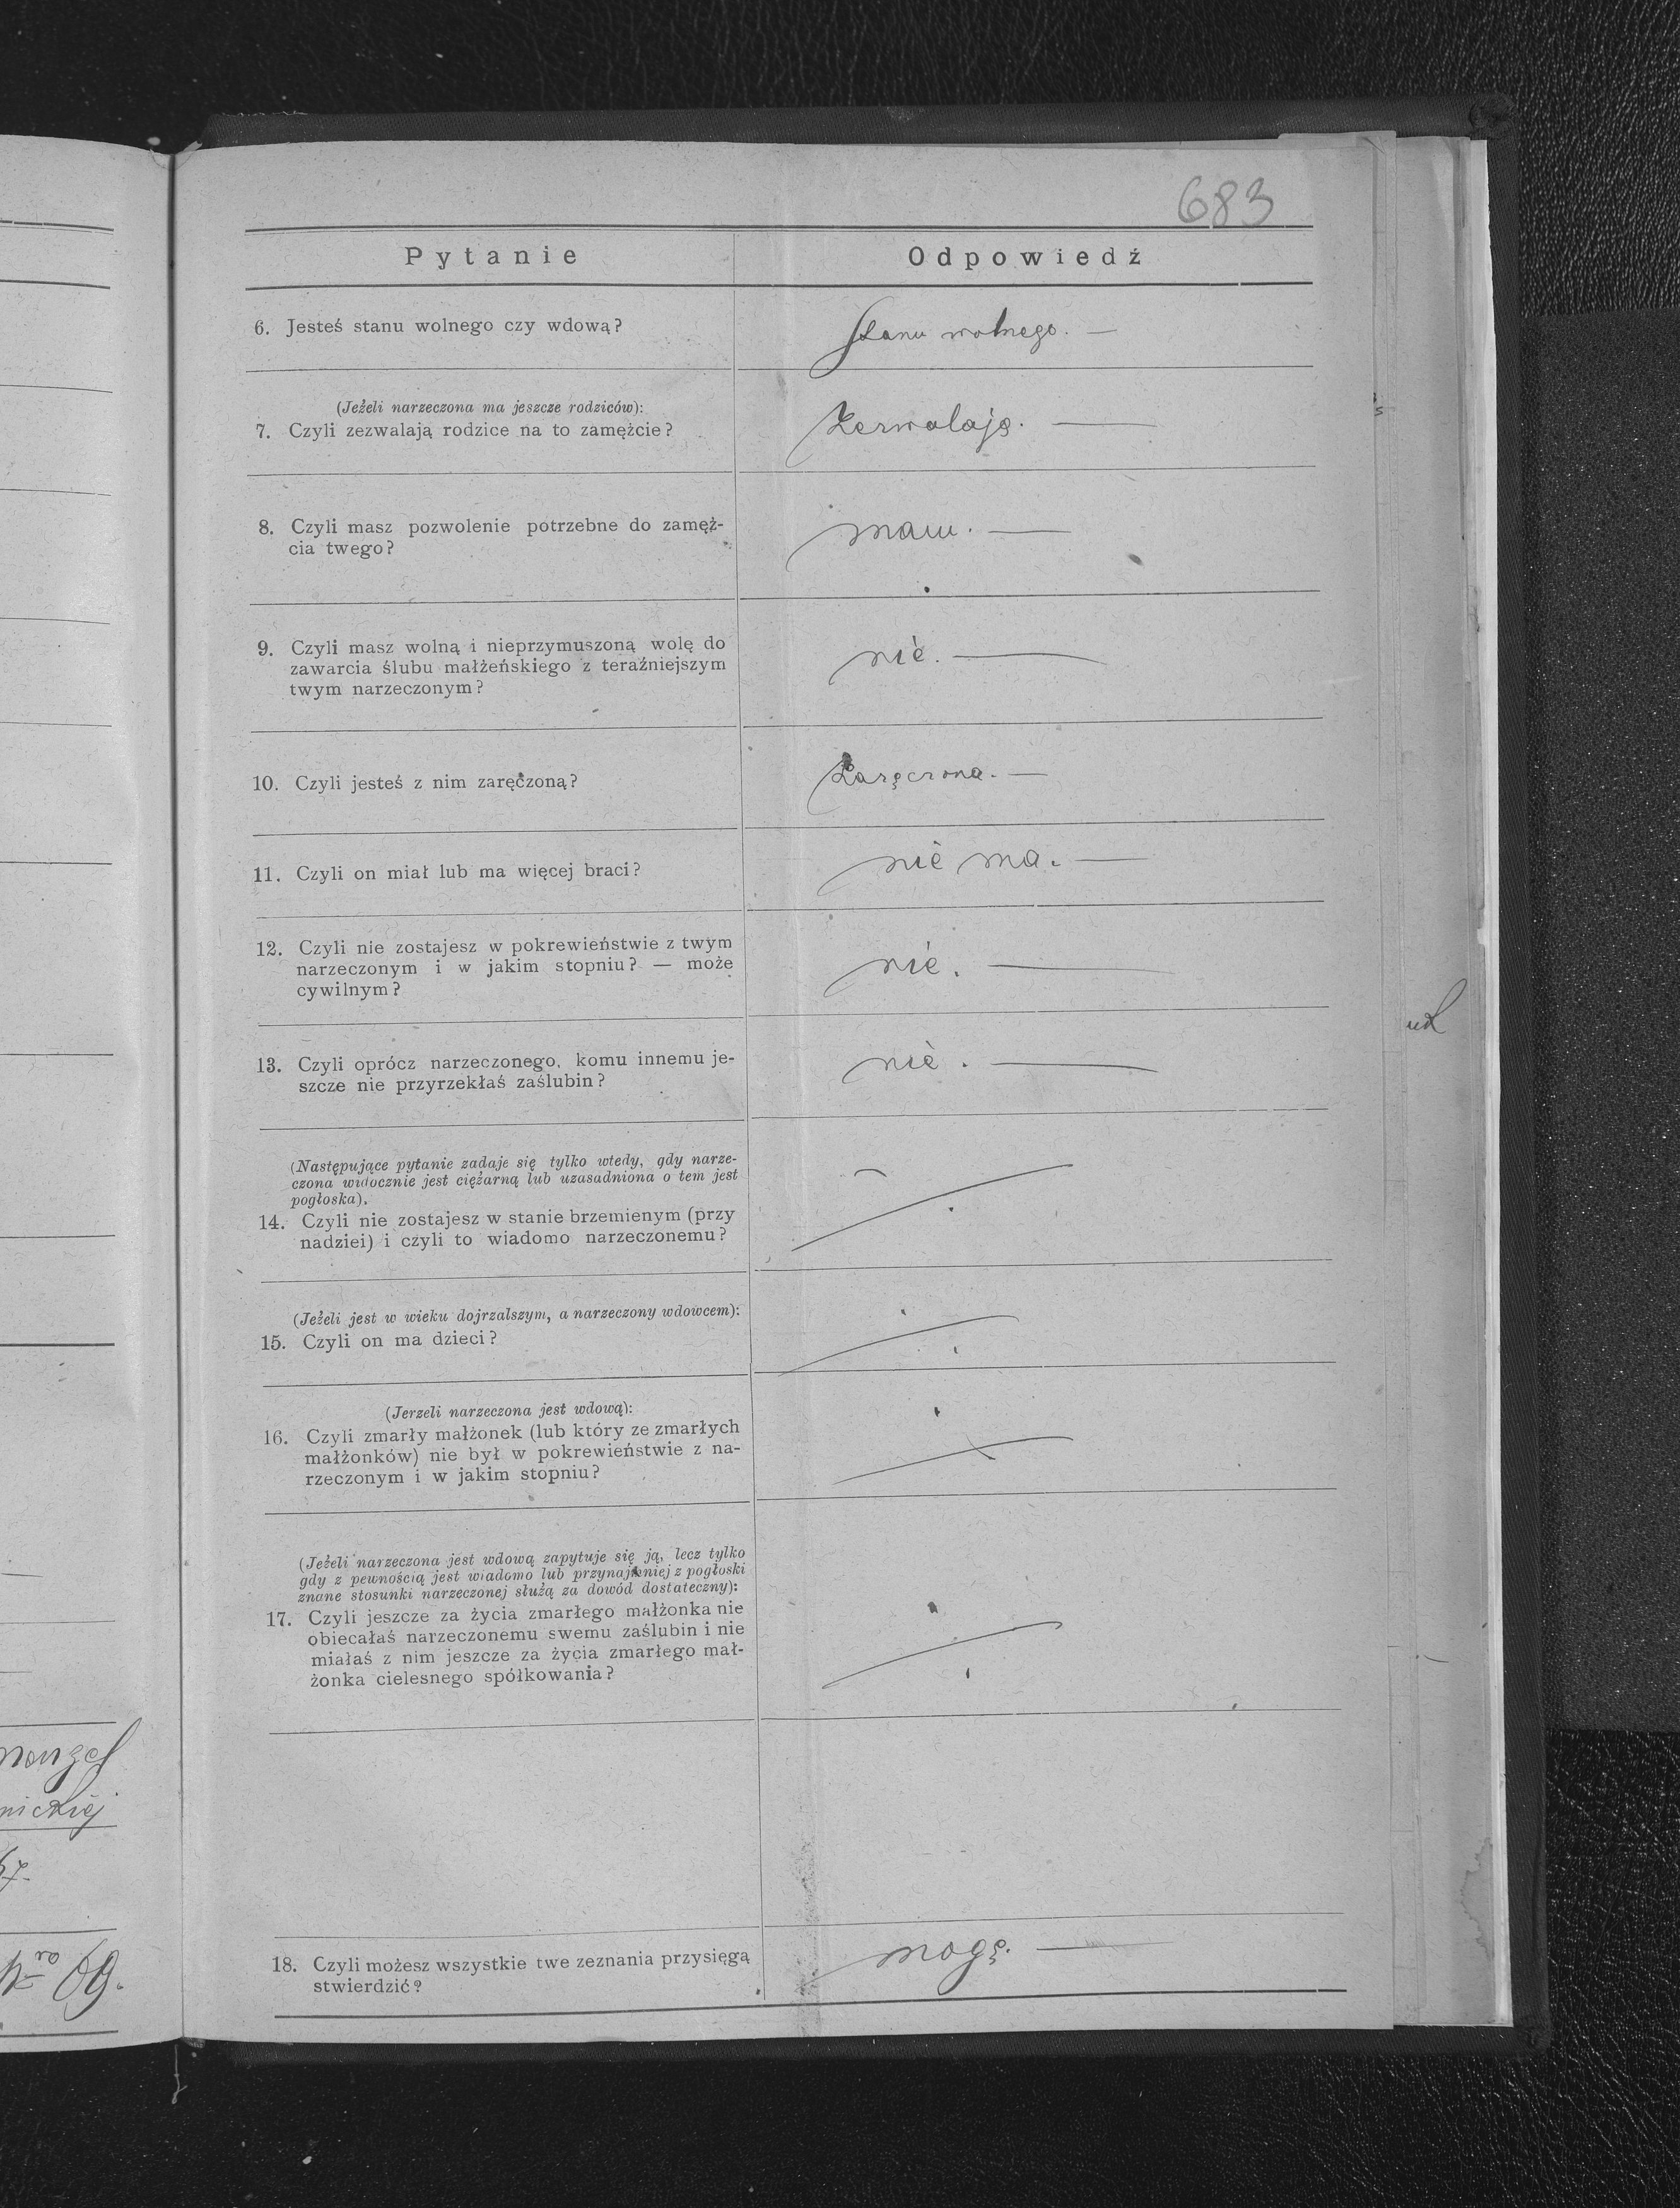 683
Pytanie Odpowiedź
6. Jesteś stanu wolnego czy wdową? Stanu wolnego. —
(Jeżeli narzeczona ma jeszcze rodziców):
7. Czyli zezwalają rodzice na to zamężcie? Zezwalają. —
8. Czyli masz pozwolenie potrzebne do zamęż- mam. —
cia twego?
9. Czyli masz wolną i nieprzymuszoną wolę do nié. —
zawarcia ślubu małżeńskiego z teraźniejszym
twym narzeczonym?
10. Czyli jesteś z nim zaręczoną? Zaręczona. —
11. Czyli on miał lub ma więcej braci? nié ma. —
12. Czyli nie zostajesz w pokrewieństwie z twym nié. —
narzeczonym i w jakim stopniu? — może
cywilnym?
13. Czyli oprócz narzeczonego, komu innemu je- nié. —
szcze nie przyrzekłaś zaślubin?
(Następujące pytanie zadaje się tylko wtedy, gdy narze-
czona widocznie jest ciężarną lub uzasadniona o tem jest
pogłoska).
14. Czyli nie zostajesz w stanie brzemienym (przy
nadziei) i czyli to wiadomo narzeczonemu?
(Jeżeli jest w wieku dojrzalszym, a narzeczony wdowcem):
15. Czyli on ma dzieci?
(Jerzeli narzeczona jest wdową):
16. Czyli zmarły małżonek (lub który ze zmarłych
małżonków) nie był w pokrewieństwie z na-
rzeczonym i w jakim stopniu?
(Jeżeli narzeczona jest wdową zapytuje się ją, lecz tylko
gdy z pewnością jest wiadomo lub przynajmniej z pogłoski
znane stosunki narzeczonej służą za dowód dostateczny):
17. Czyli jeszcze za życia zmarłego małżonka nie
obiecałaś narzeczonemu swemu zaślubin i nie
miałaś z nim jeszcze za życia zmarłego mał-
żonka cielesnego spółkowania?
18. Czyli możesz wszystkie twe zeznania przysięgą mogę. —
stwierdzić?